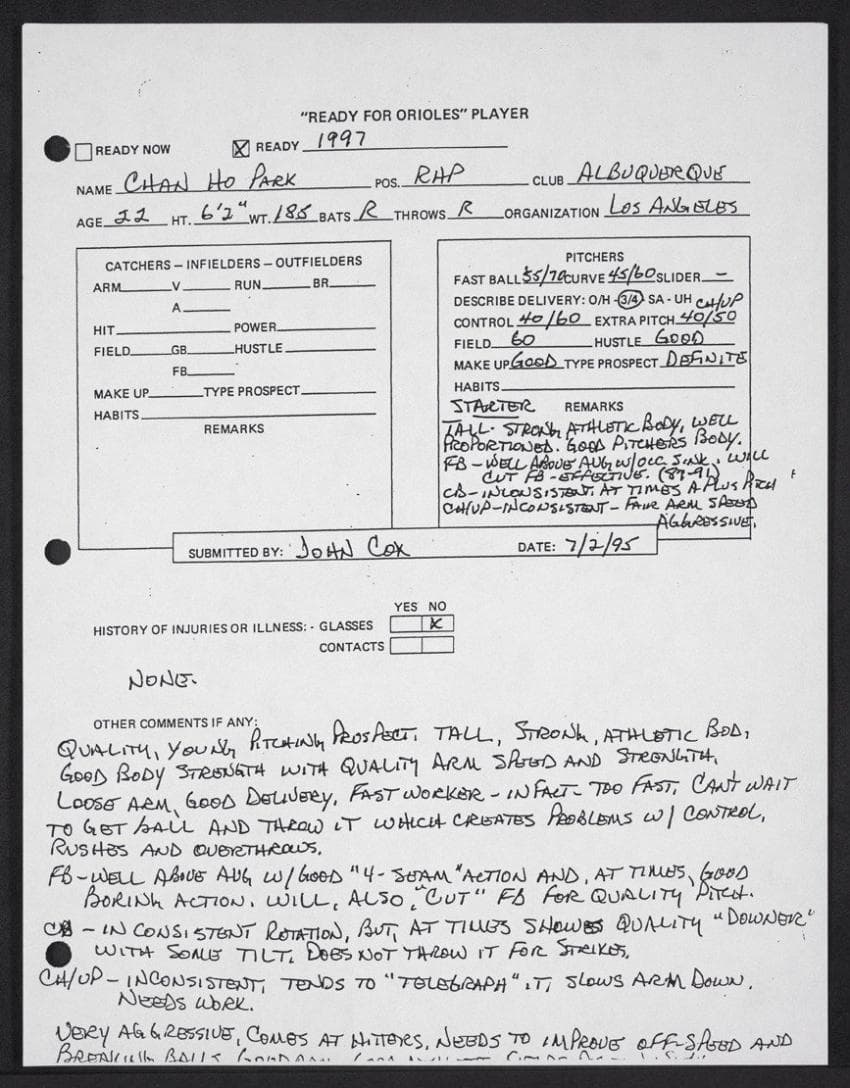 "READY FOR ORIOLES" PLAYER
READY NOW READY 1997
NAME CHAN HO PARK POS. RHP CLUB ALBUQUERQUE
AGE 22 HT. 6'2" WT. 185 BATS R THROWS R ORGANIZATION LOS ANGELES
CATCHERS – INFIELDERS – OUTFIELDERS
ARM V RUN BR
A
HIT POWER
FIELD GB HUSTLE
FB
MAKE UP TYPE PROSPECT
HABITS
REMARKS
PITCHERS
FAST BALL 55/70 CURVE 45/60 SLIDER –
DESCRIBE DELIVERY: O/H - 3/4 - SA - UH CH/UP
CONTROL 40/60 EXTRA PITCH 40/50
FIELD 60 HUSTLE GOOD
MAKE UP GOOD TYPE PROSPECT DEFINITE
HABITS
STARTER REMARKS
TALL. STRONG ATHLETIC BODY, WELL
PROPORTIONED. GOOD PITCHERS BODY.
FB – WELL ABOVE AVG W/OCC SINK. WILL
CUT FB - EFFECTIVE. (87-91)
CB – INCONSISTENT. AT TIMES A PLUS PITCH
CH/UP – INCONSISTENT – FAIR ARM SPEED
AGGRESSIVE.
SUBMITTED BY: JOHN COX DATE: 7/2/95
YES NO
HISTORY OF INJURIES OR ILLNESS: - GLASSES X
CONTACTS
NONE.
OTHER COMMENTS IF ANY:
QUALITY, YOUNG PITCHING PROSPECT. TALL, STRONG, ATHLETIC BOD,
GOOD BODY STRENGTH WITH QUALITY ARM SPEED AND STRENGTH.
LOOSE ARM, GOOD DELIVERY. FAST WORKER – IN FACT – TOO FAST. CAN'T WAIT
TO GET BALL AND THROW IT WHICH CREATES PROBLEMS W/ CONTROL,
RUSHES AND OVERTHROWS.
FB – WELL ABOVE AVG W/ GOOD "4 - SEAM" ACTION AND, AT TIMES, GOOD
BORING ACTION. WILL, ALSO, "CUT" FB FOR QUALITY PITCH.
CB – INCONSISTENT ROTATION, BUT, AT TIMES SHOWES QUALITY "DOWNER"
WITH SOME TILT. DOES NOT THROW IT FOR STRIKES.
CH/UP – INCONSISTENT, TENDS TO "TELEGRAPH" IT, SLOWS ARM DOWN.
NEEDS WORK.
VERY AGGRESSIVE, COMES AT HITTERS. NEEDS TO IMPROVE OFF-SPEED AND
BREAKING BALLS